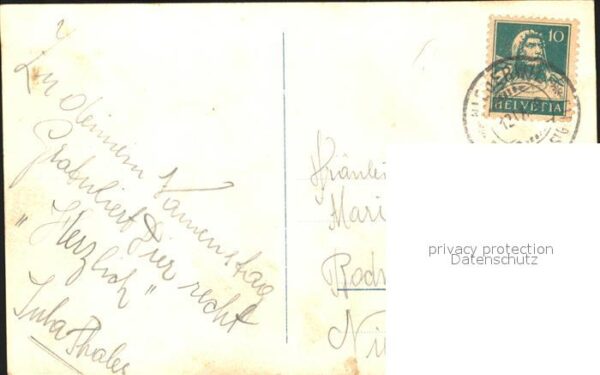 Zu deinem Namenstag
Gratuliert Dier recht
"Herzlich"
Fräulei
Mari
Rod
Ni
10
HELVETIA
privacy protection
Datenschutz